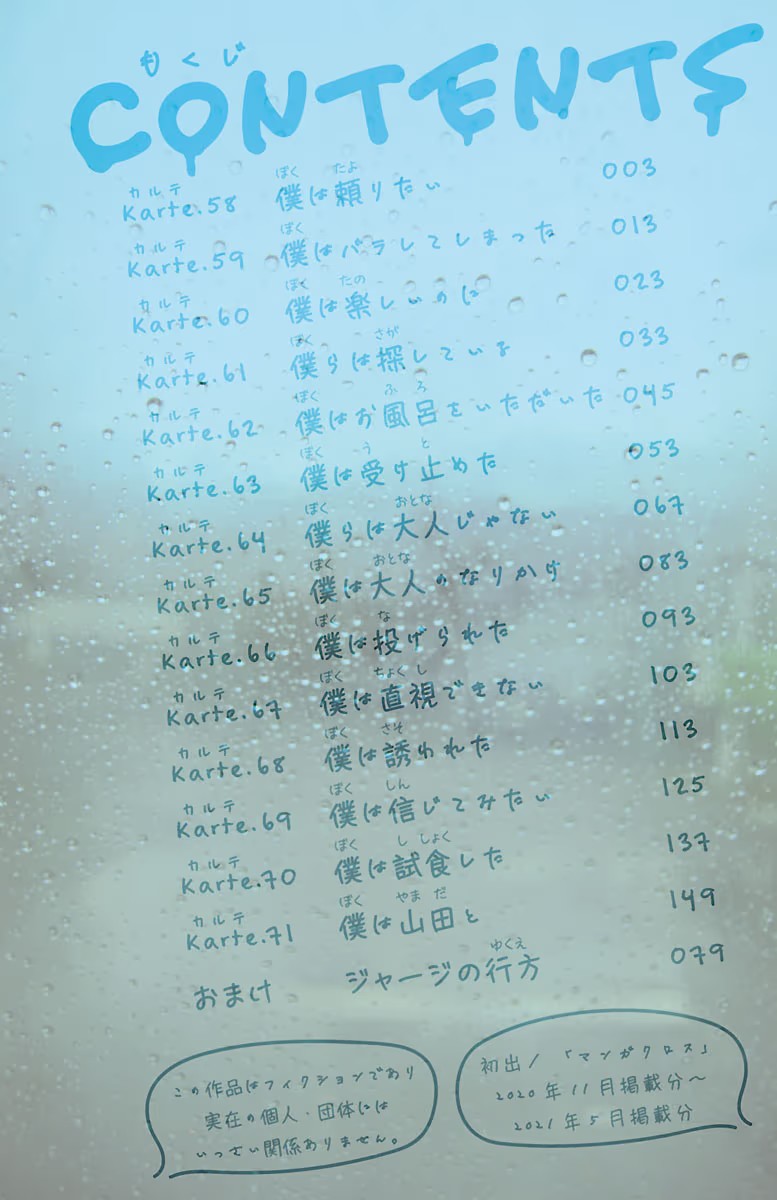 もくじ
CONTENTS
カルテ ぼく たよ
Karte.58 僕は頼りたい 003
カルテ ぼく
Karte.59 僕はバラしてしまった 013
カルテ ぼく たの
Karte.60 僕は楽しいのに 023
カルテ ぼく さが
Karte.61 僕らは探している 033
カルテ ぼく ふろ
Karte.62 僕はお風呂をいただいた 045
カルテ ぼく う と
Karte.63 僕は受け止めた 053
カルテ ぼく おとな
Karte.64 僕らは大人じゃない 067
カルテ ぼく おとな
Karte.65 僕は大人のなりかけ 083
カルテ ぼく な
Karte.66 僕は投げられた 093
カルテ ぼく ちょくし
Karte.67 僕は直視できない 103
カルテ ぼく さそ
Karte.68 僕は誘われた 113
カルテ ぼく しん
Karte.69 僕は信じてみたい 125
カルテ ぼく ししょく
Karte.70 僕は試食した 137
カルテ ぼく やまだ
Karte.71 僕は山田と 149
ゆくえ
おまけ ジャージの行方 079
この作品はフィクションであり
実在の個人・団体には
いっさい関係ありません。
初出/「マンガクロス」
2020年11月掲載分〜
2021年5月掲載分